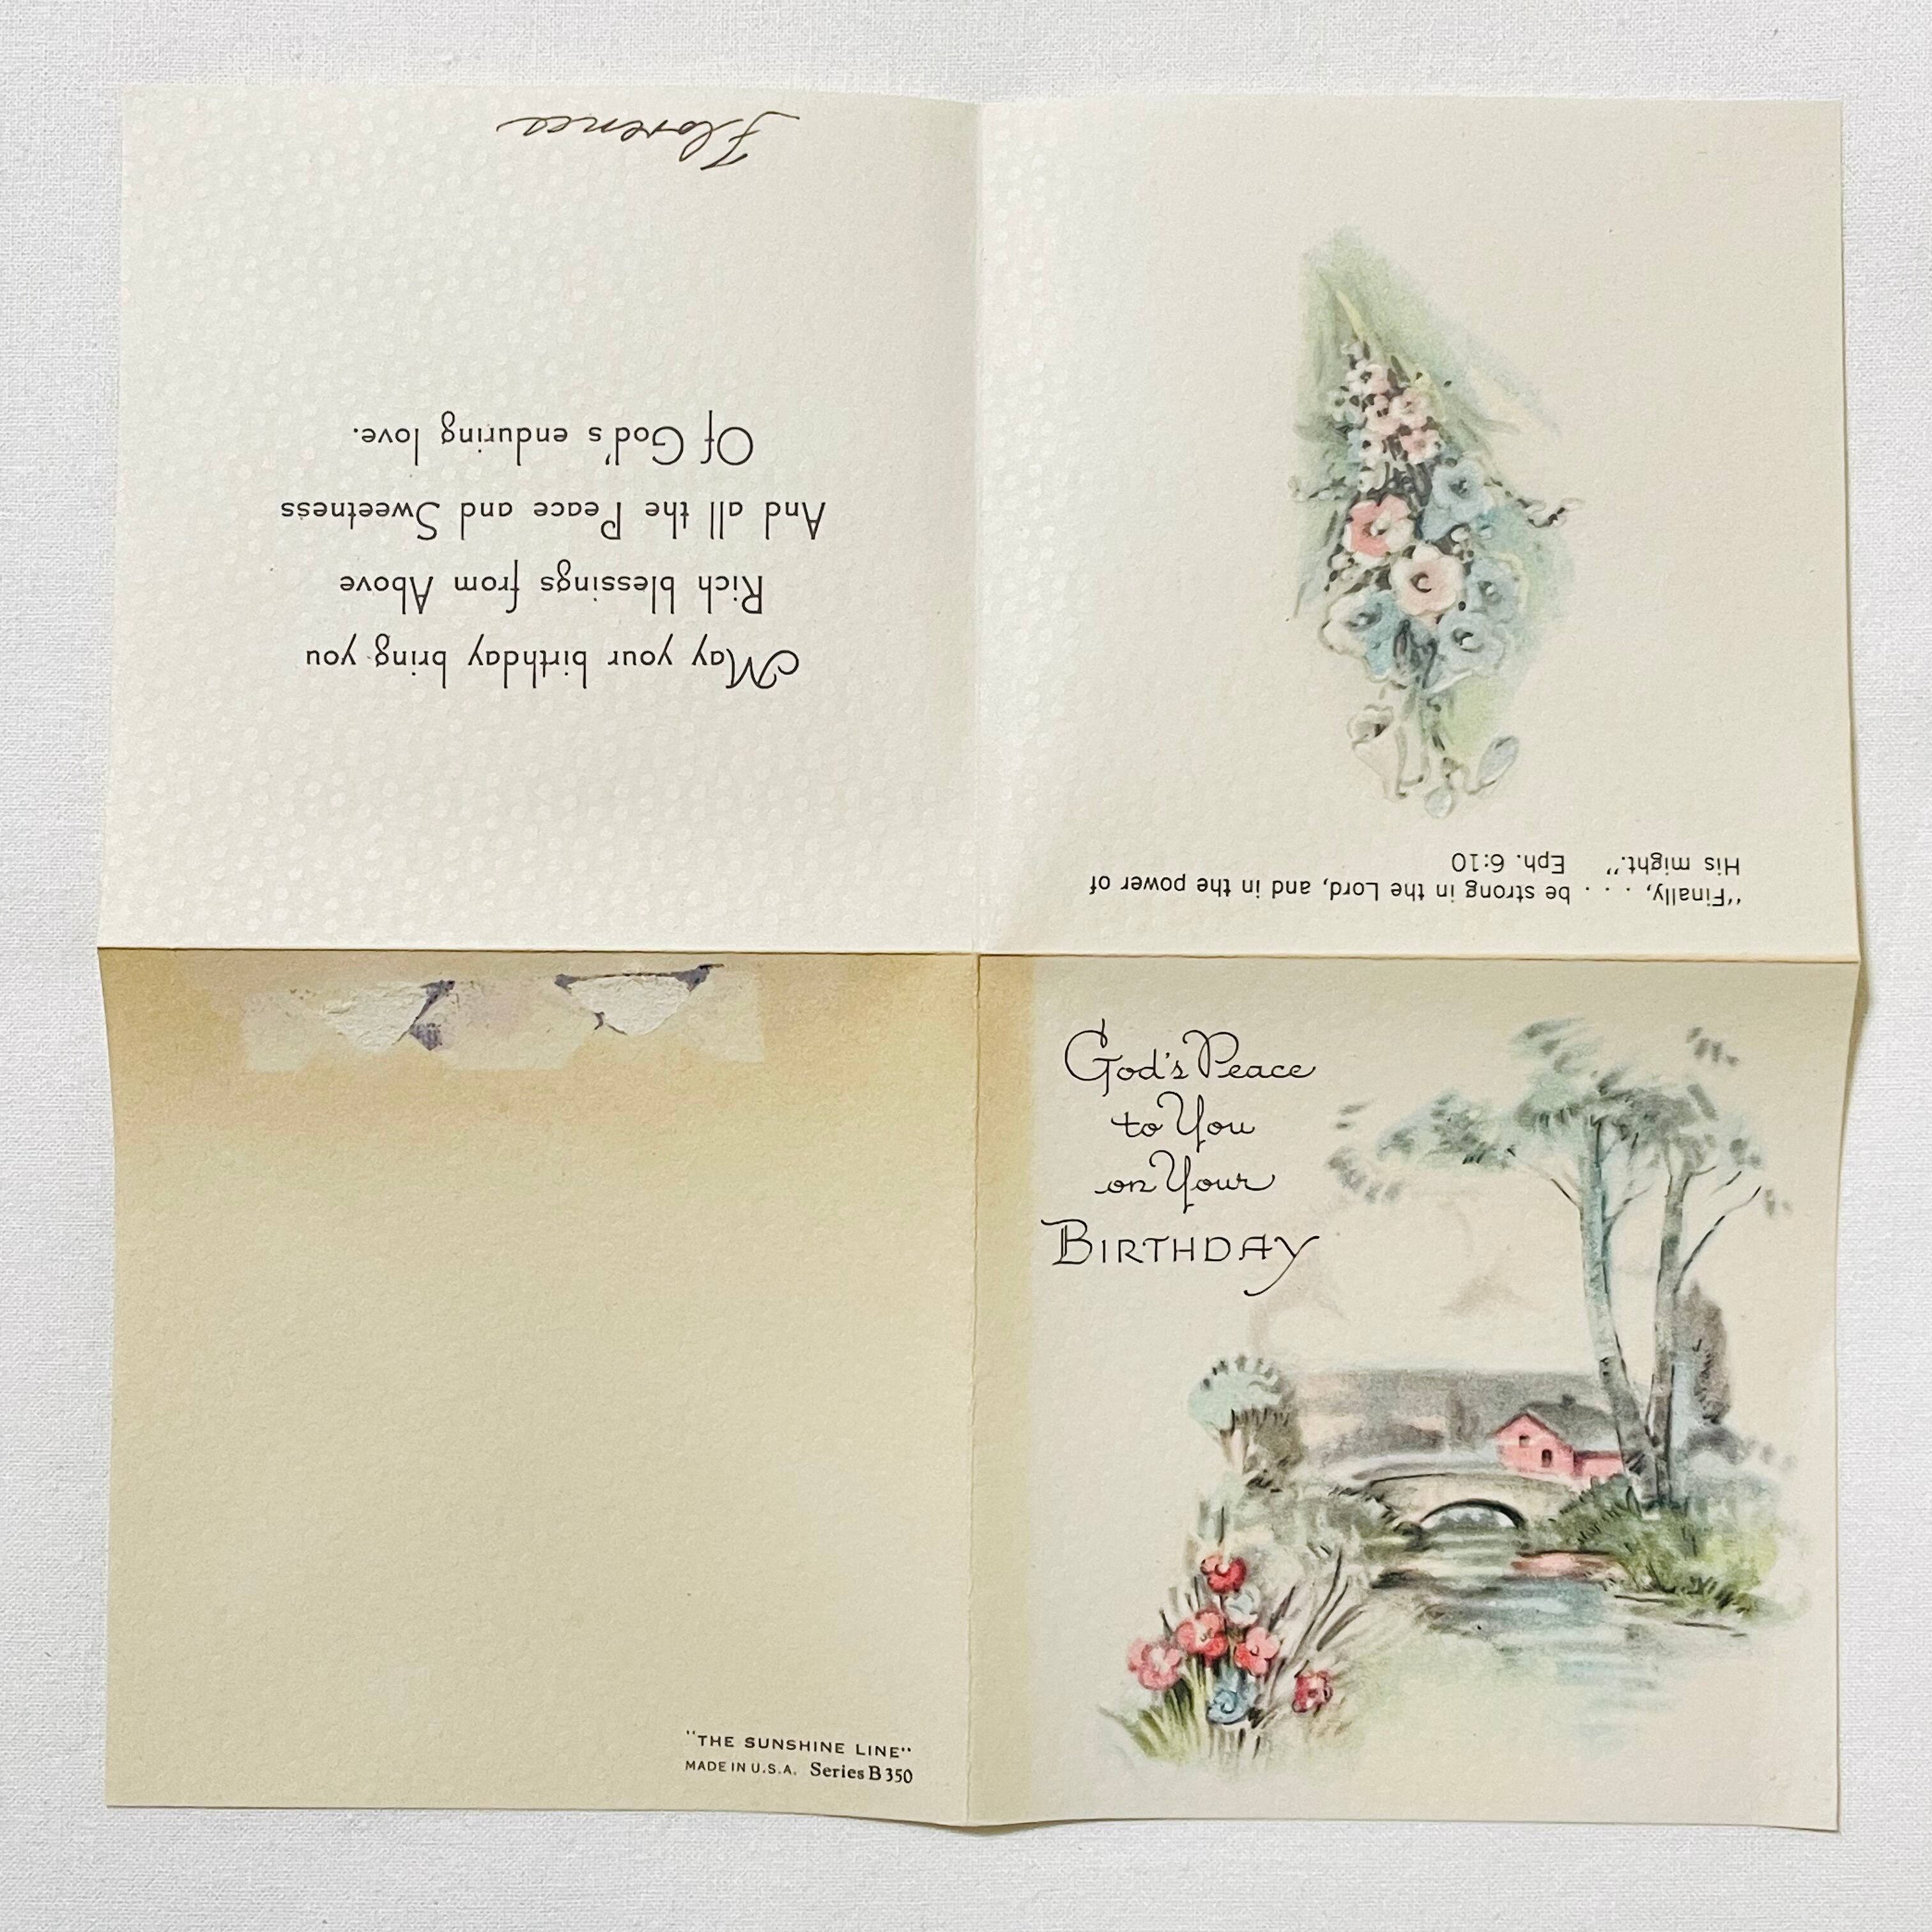 God's Peace
to You
on Your
BIRTHDAY
"Finally, . . . . be strong in the Lord, and in the power of
His might." Eph. 6:10
May your birthday bring you
Rich blessings from Above
And all the Peace and Sweetness
Of God's enduring love.
Florence
"THE SUNSHINE LINE"
MADE IN U.S.A. Series B 350